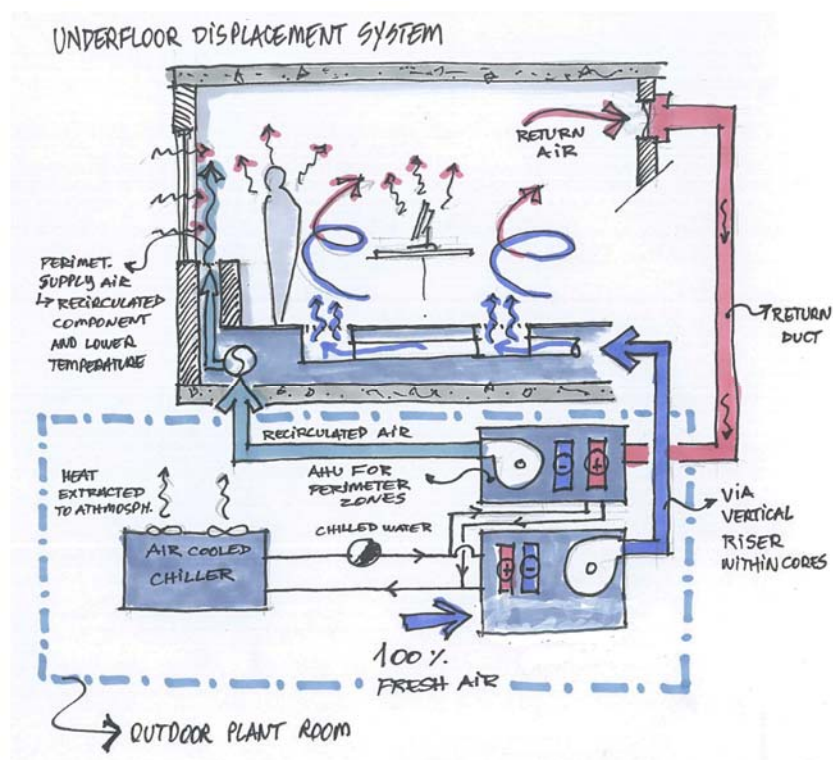 UNDERFLOOR DISPLACEMENT SYSTEM
RETURN
AIR
PERIMET.
SUPPLY AIR
↳ RECIRCULATED
COMPONENT
AND LOWER
TEMPERATURE
RETURN
DUCT
RECIRCULATED AIR
HEAT
EXTRACTED
TO ATHMOSPH.
AHU FOR
PERIMETER
ZONES
CHILLED WATER
VIA
VERTICAL
RISER
WITHIN CORES
AIR COOLED
CHILLER
100%
FRESH AIR
OUTDOOR PLANT ROOM